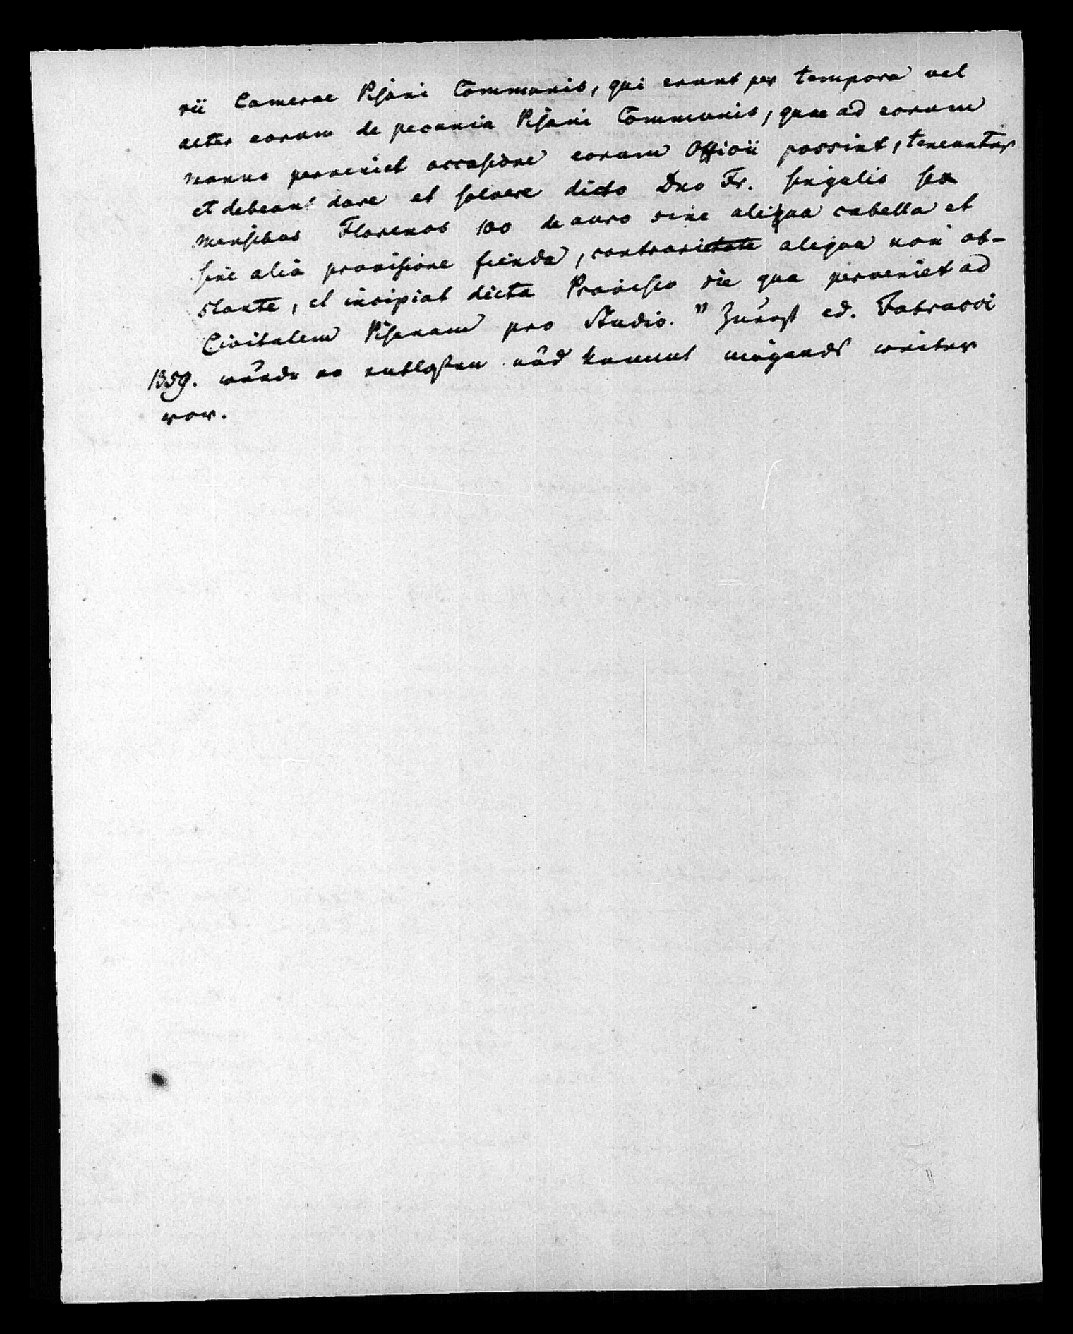 rii Camerae Pisani Communis, qui erunt per tempora vel
alter eorum de pecunia Pisani Communis, quae ad eorum
manus perveniet occasione eorum Officii possint, teneantur
et debeant dare et solvere dicto Dno Fr. singulis sex
mensibus Florenos 100 de auro sine aliqua cabella et
sine alia provisione fienda, contrarietate aliqua non ob-
stante, et incipiat dicta Provisio die qua perveniet ad
Civitatem Pisanam pro Studio." Zuerst ed. Fabrucci
1359. wurde er entlassen und kommt nirgends weiter
vor.